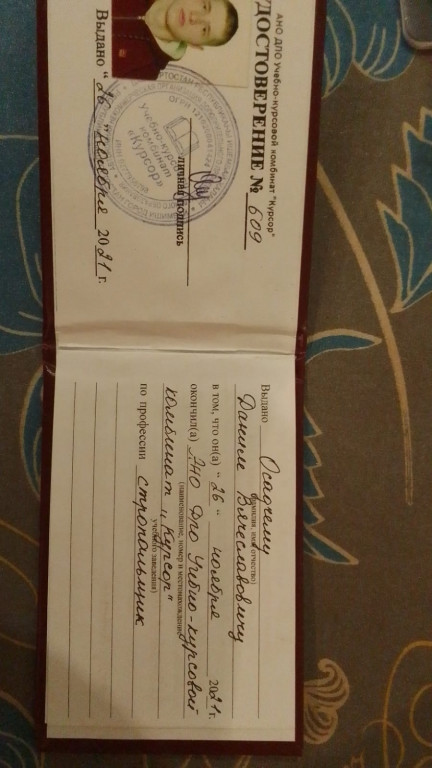 АНО ДПО Учебно-курсовой комбинат "Курсор"
УДОСТОВЕРЕНИЕ № 609
личная подпись
Учебно-курсовой
комбинат
«Курсор»
Выдано "26" ноября 2021 г.
Выдано Осадчему
(фамилия, имя, отчество)
Данилу Вячеславовичу
в том, что он(а) "26" ноября 2021 г.
окончил(а) АНО ДПО Учебно-курсовой
(наименование, номер и местонахождение
комбинат „Курсор"
учебного заведения)
по профессии стропальщик